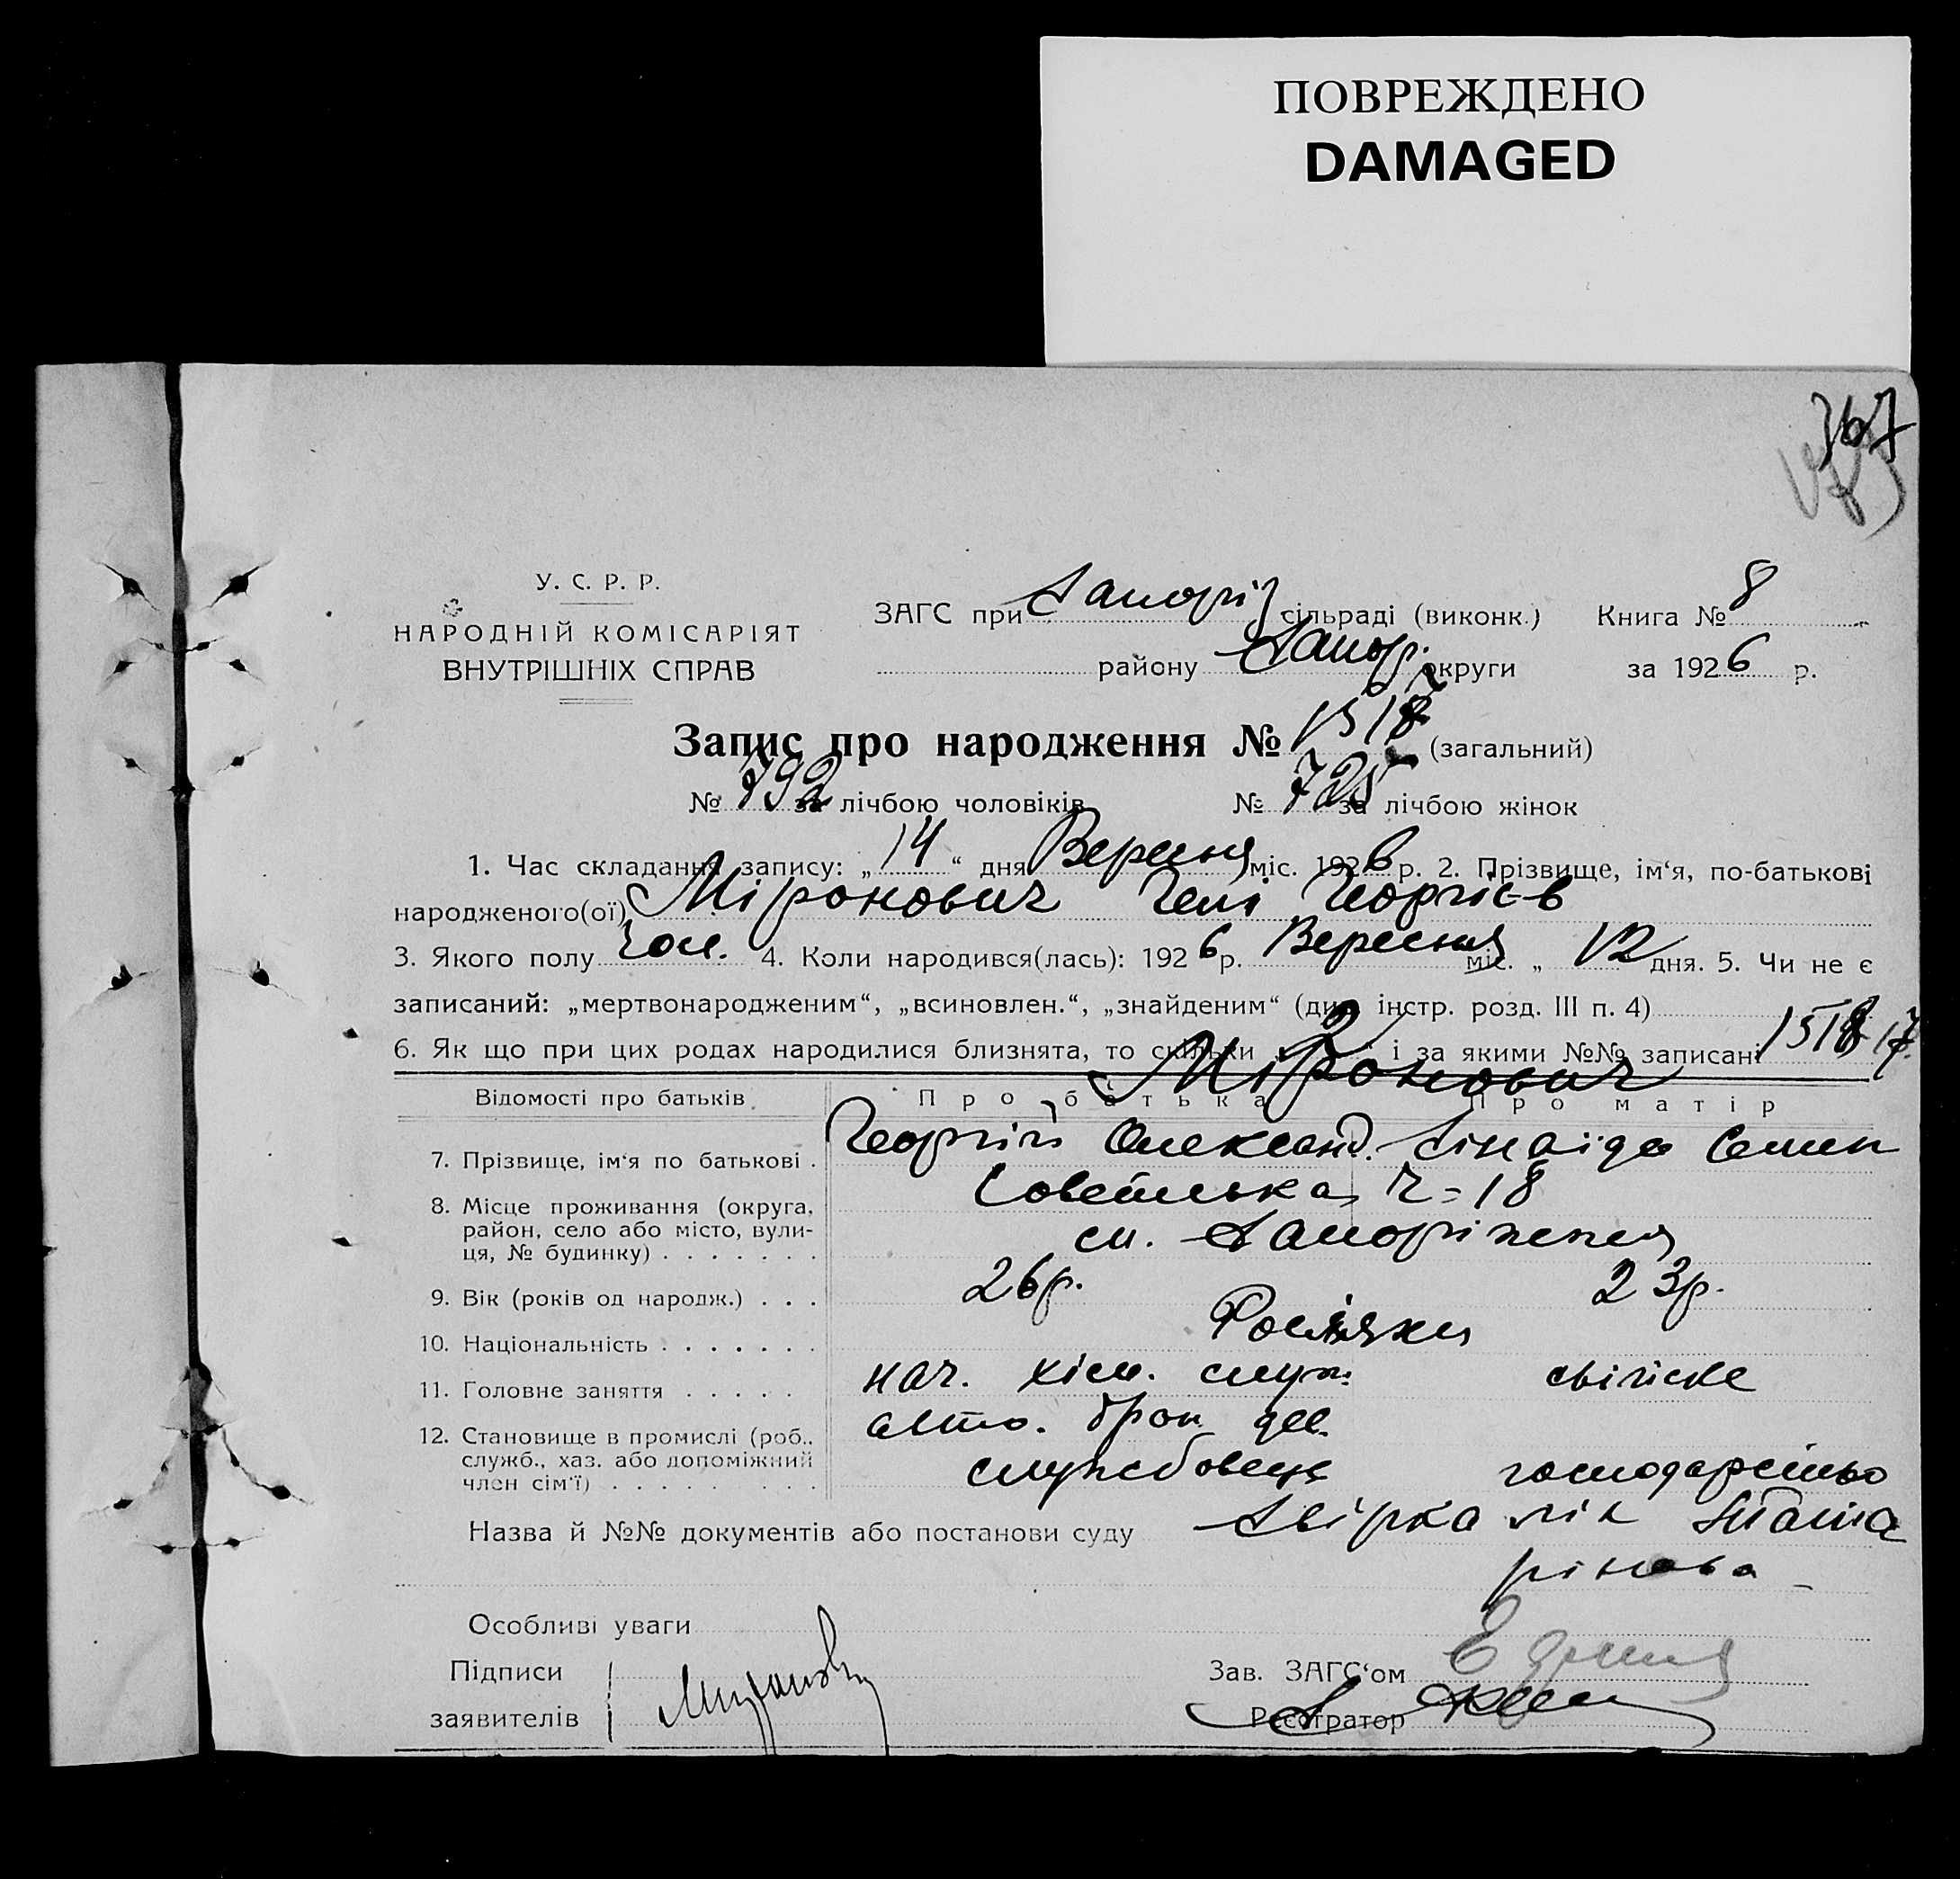 ПОВРЕЖДЕНО
DAMAGED
767
У. С. Р. Р.
НАРОДНІЙ КОМІСАРІЯТ
ВНУТРІШНІХ СПРАВ
ЗАГС при Запоріз сільраді (виконк.) Книга № 8
району Запор. округи за 1926 р.
Запис про народження № 1517 (загальний)
№ 792 за лічбою чоловіків № 725 за лічбою жінок
1. Час складання запису: „14“ дня Вересня міс. 1926 р. 2. Прізвище, ім‘я, по-батькові
народженого(ої) Міронович Гелі Георгієв
3. Якого полу чол. 4. Коли народився(лась): 1926 р. Вересня міс. „12 дня. 5. Чи не є
записаний: „мертвонародженим“, „всиновлен.“, „знайденим“ (див. інстр. розд. III п. 4)
6. Як що при цих родах народилися близнята, то скільки „2“ і за якими №№ записані 1518 17
Міронович
Відомості про батьків Про батька Про матір
7. Прізвище, ім‘я по батькові . Георгій Олександ. Зінаїда Семен
8. Місце проживання (округа, район, село або місто, вулиця, № будинку) . . . . . . . Советська ч=18
см. Запоріжжя
9. Вік (років од народж.) . . . 26р. 23р.
10. Національність . . . . . . . Росіяки
11. Головне заняття . . . . . нач. хім. служ. свійске
авто. брон. див.
12. Становище в промислі (роб., служб., хаз. або допоміжний член сім‘ї) . . . . . . . . службовець господарство
Назва й №№ документів або постанови суду Звірка лік
Особливі уваги
Підписи
заявителів
Зав. ЗАГС‘ом
Реєстратор